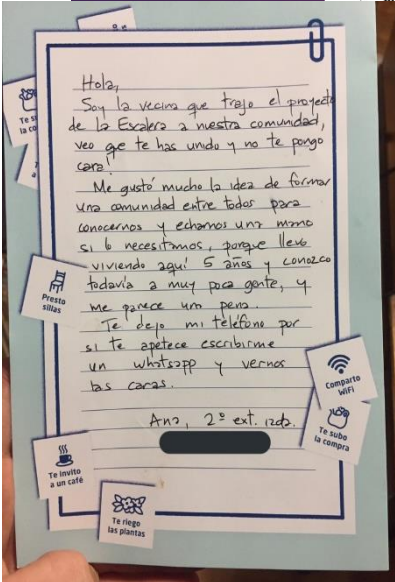 Te su
la co
Hola,
Soy la vecina que trajo el proyecto
de la Escalera a nuestra comunidad,
veo que te has unido y no te pongo
cara!
Me gustó mucho la idea de formar
una comunidad entre todos para
conocernos y echarnos una mano
si lo necesitamos, porque llevo
viviendo aquí 5 años y conozco
todavía a muy poca gente, y
me parece una pena.
Te dejo mi teléfono por
si te apetece escribirme
un whatsapp y vernos
las caras.
Ana, 2º ext. izda.
Presto
sillas
Comparto
WiFi
Te subo
la compra
Te invito
a un café
Te riego
las plantas